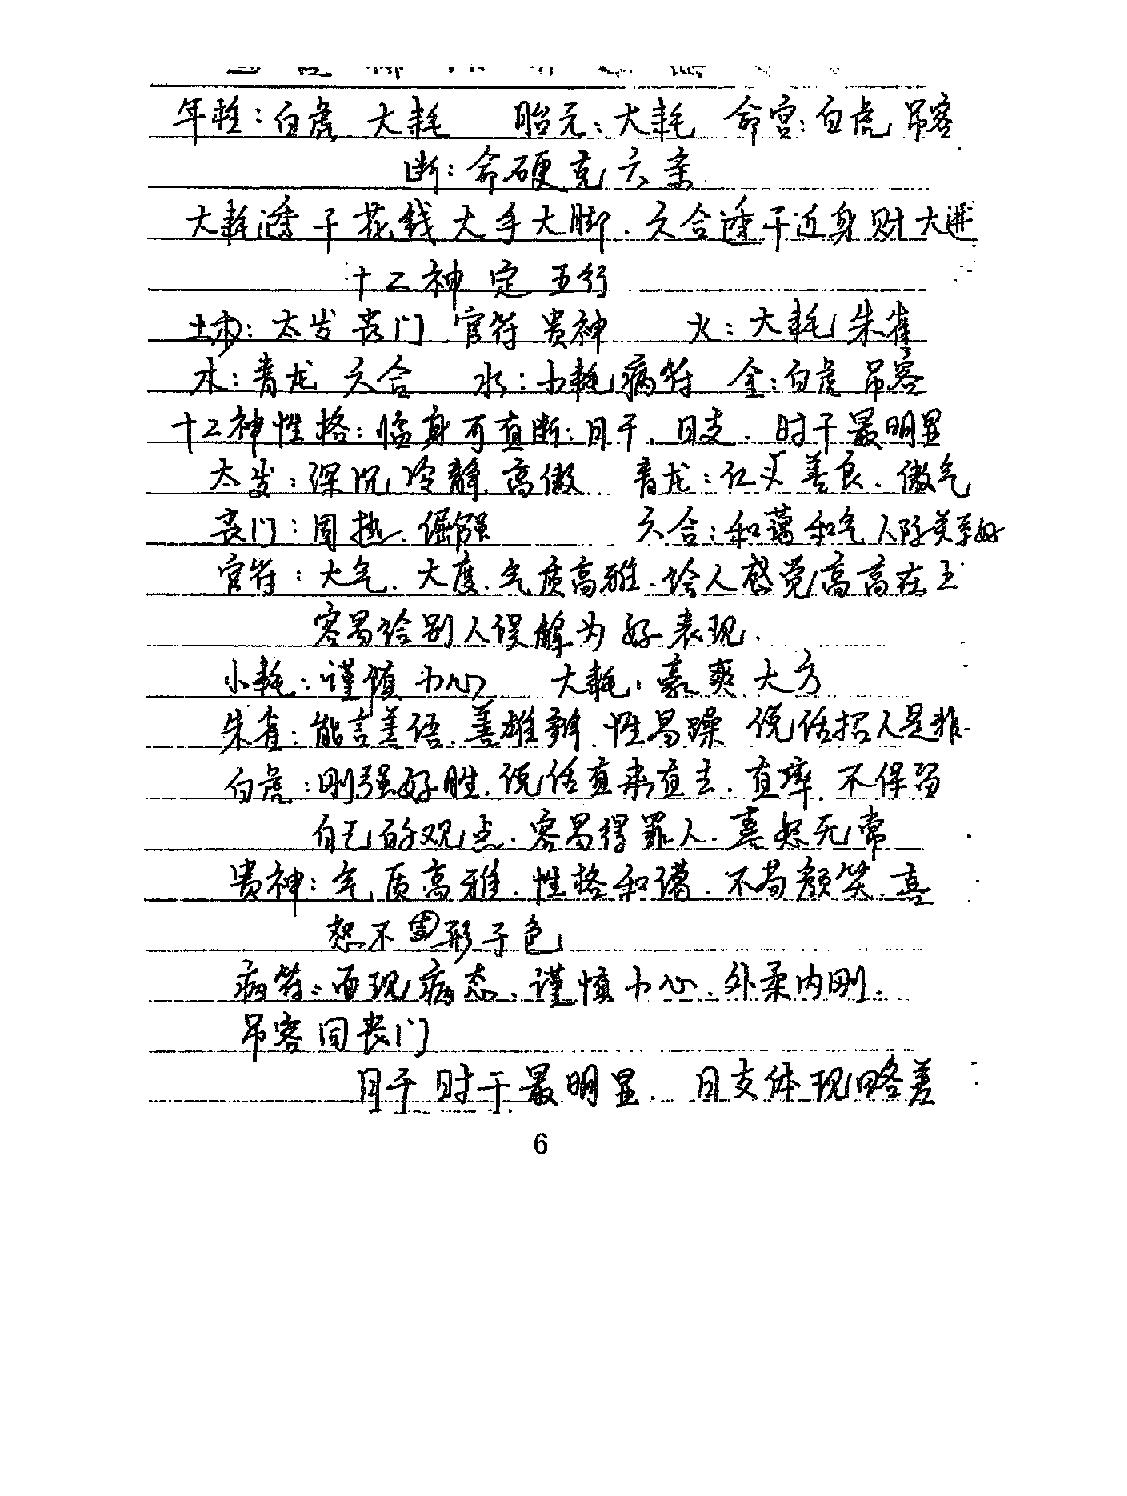 年柱：白虎 大耗 胎元：大耗 命宫：白虎 吊客
断：命硬克六亲
大耗透干花钱大手大脚．六合透干近身财大进
十二神定五行
土：太岁 丧门 官符 贵神 火：大耗 朱雀
木：青龙 六合 水：小耗 病符 金：白虎 吊客
十二神性格：临身可直断：日干．日支．时干最明显
太岁：深沉冷静高傲 青龙：仁义善良．傲气
丧门：固执．倔强 六合：和蔼和气人际关系好
官符：大气．大度．气质高雅．给人感觉高高在上
容易给别人误解为好表现．
小耗：谨慎小心 大耗：豪爽大方
朱雀：能言善语．善雄辩．性易躁 说话招人是非
白虎：刚强好胜．说话直来直去．直率．不保留
自己的观点．容易得罪人．喜怒无常
贵神：气质高雅．性格和蔼．不苟颜笑．喜
怒不形于色
病符：面现病态．谨慎小心．外柔内刚．
吊客同丧门
日干时干最明显．日支体现略差
6